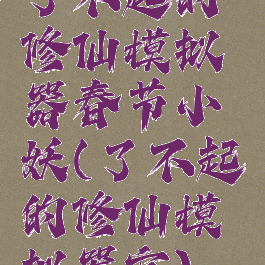 了不起的
修仙模拟
器春节小
妖(了不起
的修仙模
拟器官)